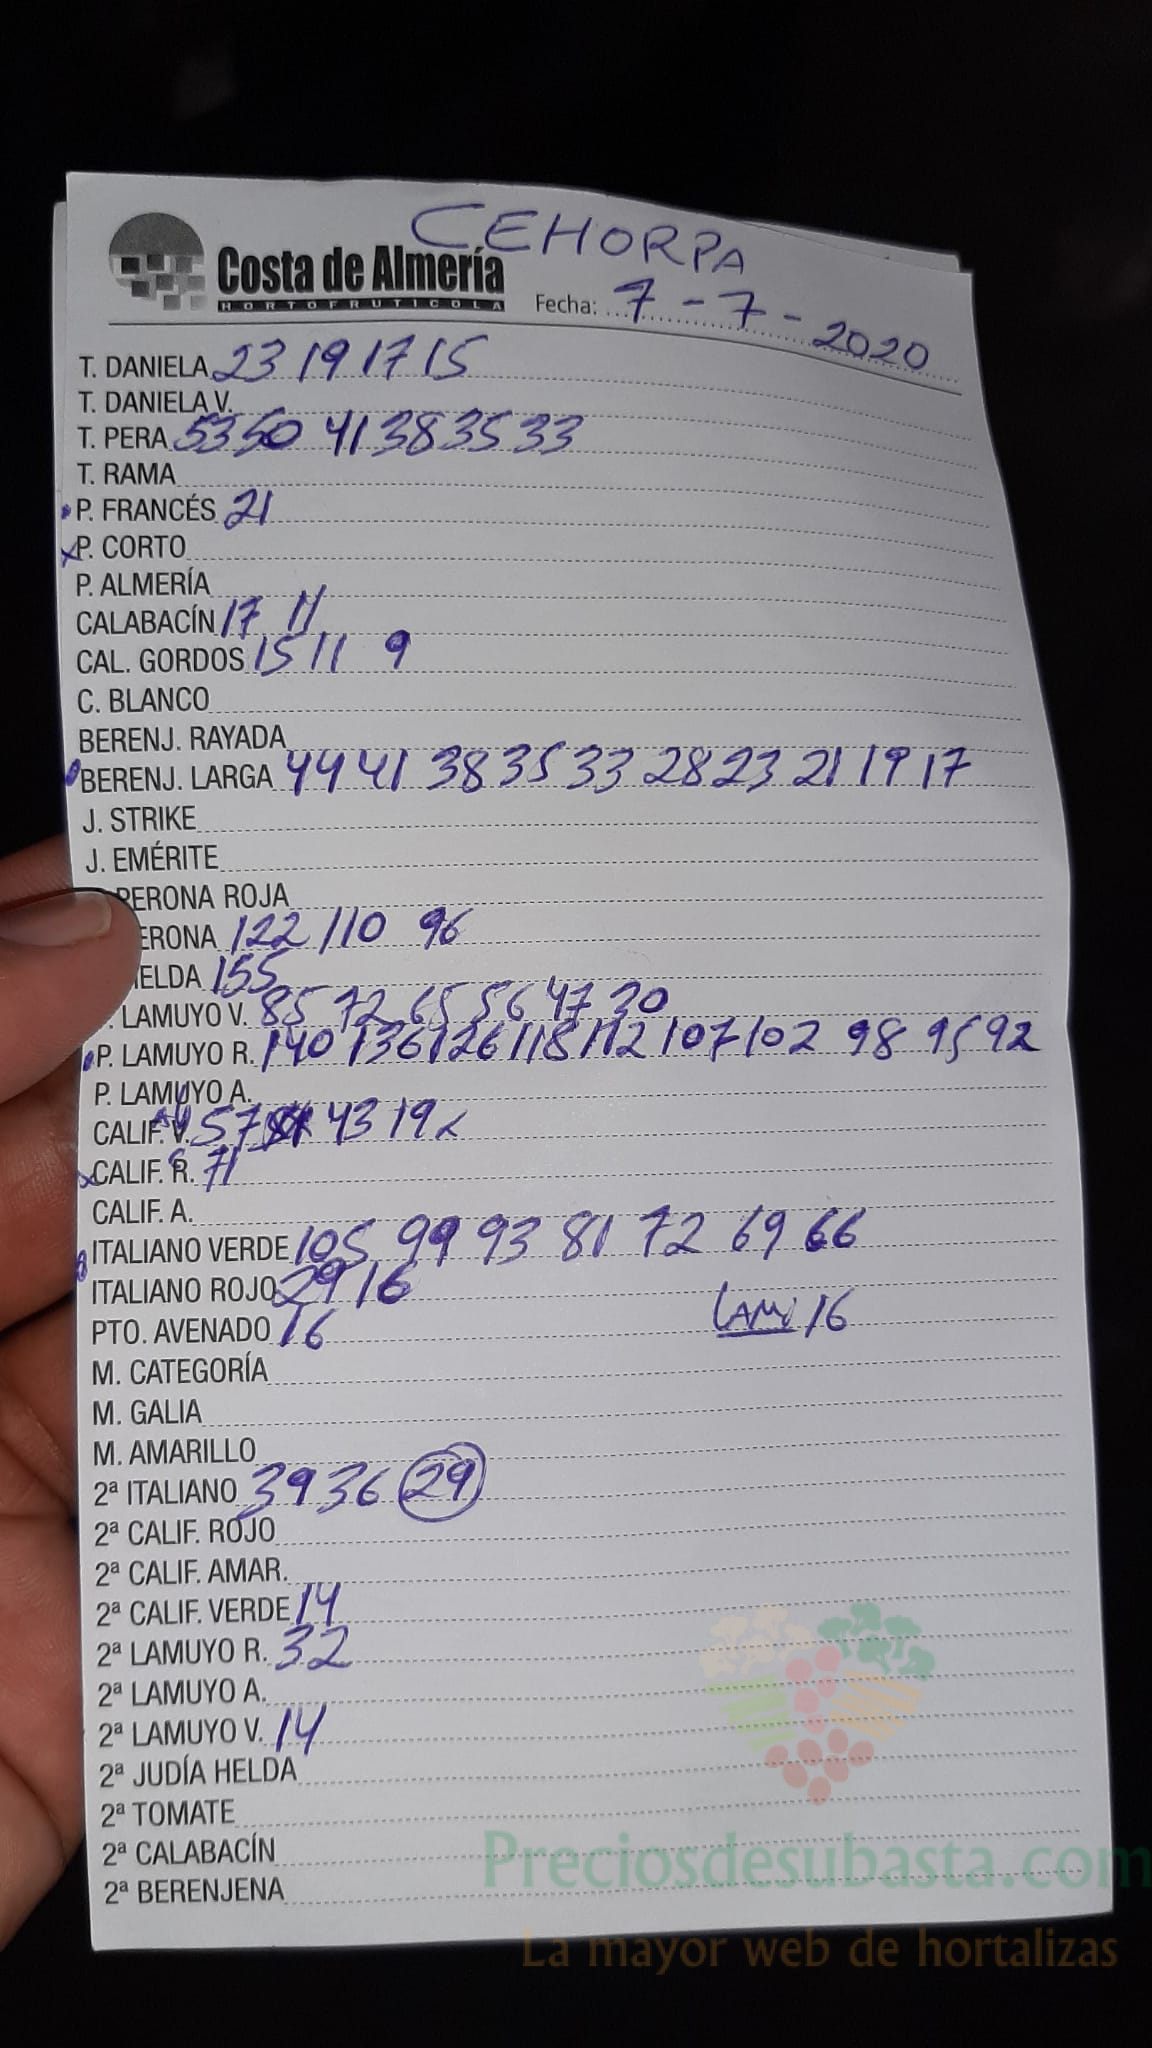 CEHORPA
Costa de Almería
HORTOFRUTICOLA
Fecha: 7-7-2020
T. DANIELA 23 19 17 15
T. DANIELA V.
T. PERA 53 50 41 38 35 33
T. RAMA
P. FRANCÉS 21
x P. CORTO
P. ALMERÍA
CALABACÍN 17 11
CAL. GORDOS 15 11 9
C. BLANCO
BERENJ. RAYADA
BERENJ. LARGA 44 41 38 35 33 28 23 21 19 17
J. STRIKE
J. EMÉRITE
PERONA ROJA
ERONA 122 110 96
ELDA 155
LAMUYO V. 85 72 65 56 47 30
P. LAMUYO R. 140 136 126 118 112 107 102 98 95 92
P. LAMUYO A.
CALIF. V. 57 43 19
x CALIF. R. 71
CALIF. A.
ITALIANO VERDE 105 99 93 81 72 69 66
ITALIANO ROJO 29 16
PTO. AVENADO 16 LAM 16
M. CATEGORÍA
M. GALIA
M. AMARILLO
2ª ITALIANO 39 36 29
2ª CALIF. ROJO
2ª CALIF. AMAR.
2ª CALIF. VERDE 14
2ª LAMUYO R. 32
2ª LAMUYO A.
2ª LAMUYO V. 14
2ª JUDÍA HELDA
2ª TOMATE
2ª CALABACÍN
2ª BERENJENA
Preciosdesubasta.com
La mayor web de hortalizas